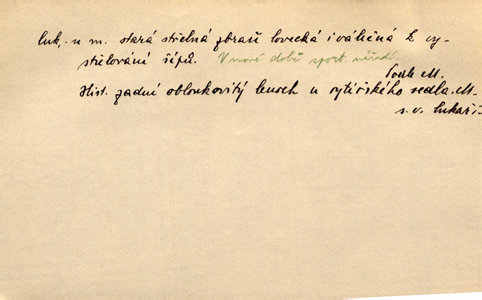 luk, -u m. stará střelná zbraň lovecká i válečná k vy-
střelování šípů. V nové době sport. nářadí.
Podle M.
Hist. zadní obloukovitý lenoch u rytířského sedla. M.
s. v. lukař